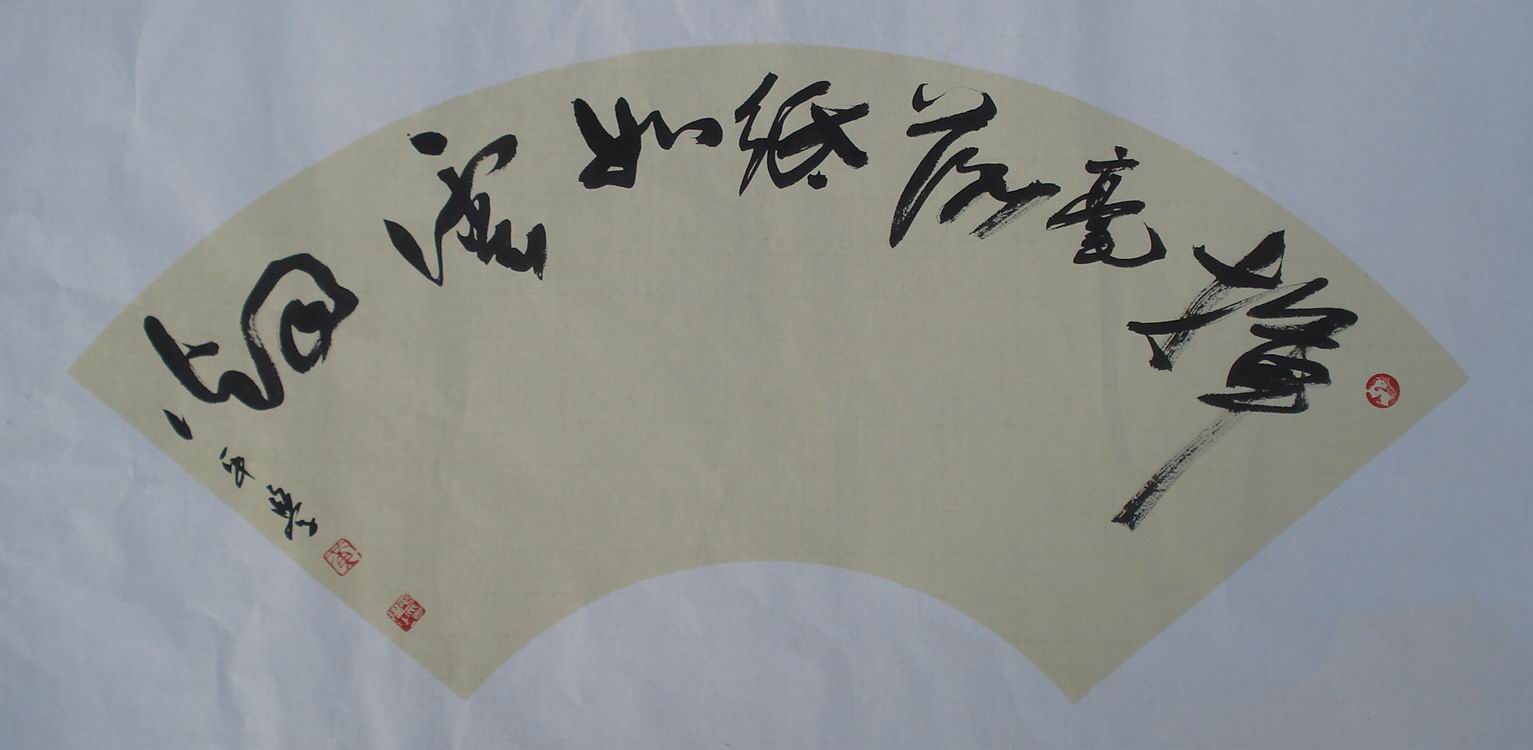 揮毫落紙如雲烟